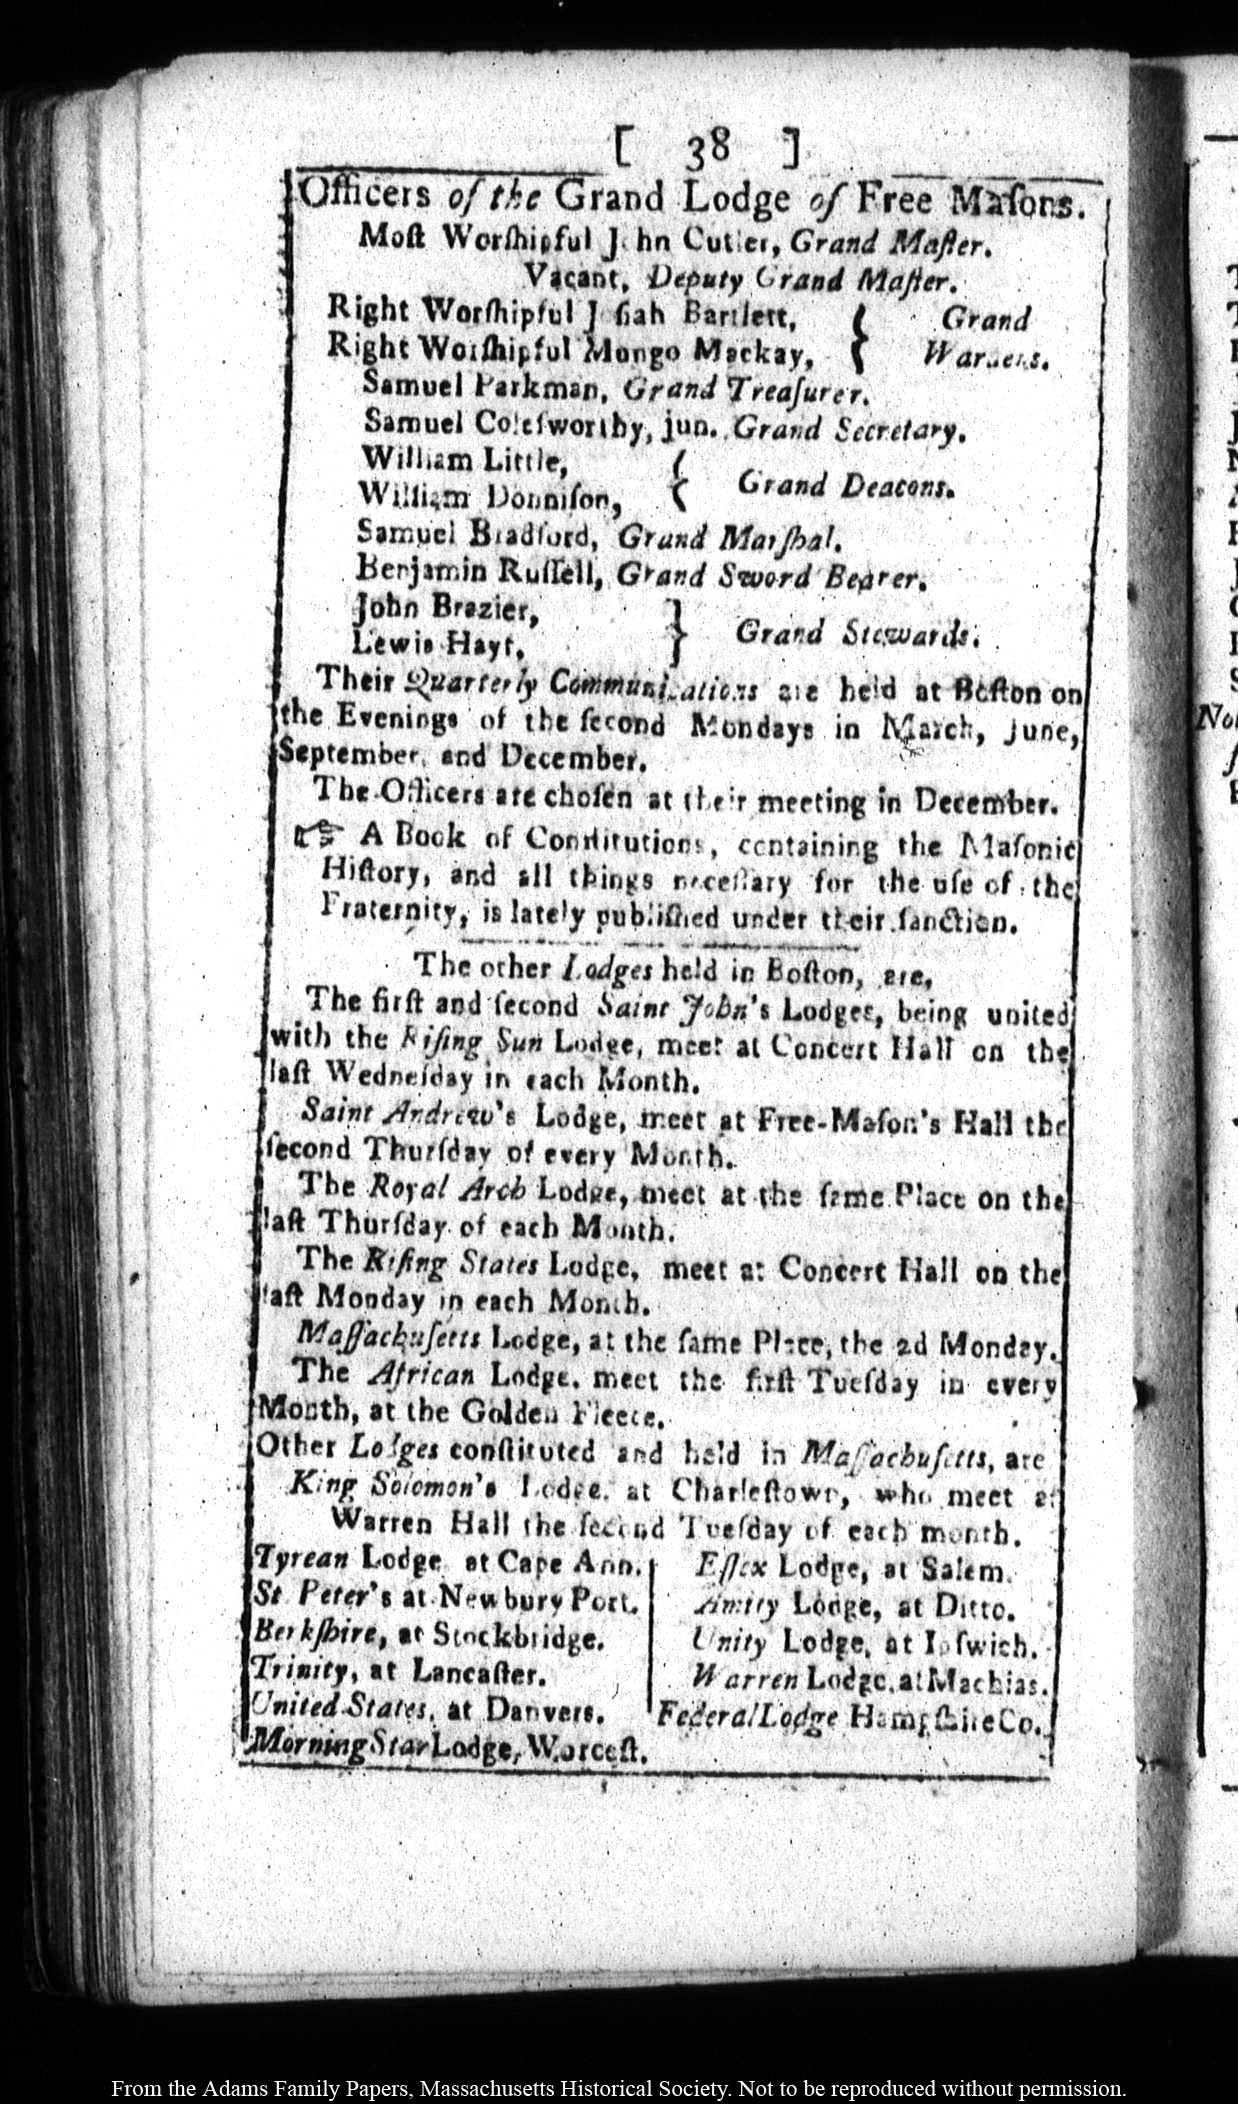 [ 38 ]
Officers of the Grand Lodge of Free Maſons.
Moſt Worſhipful J hn Cutler, Grand Maſter.
Vacant, Deputy Grand Maſter.
Right Worſhipful J ſiah Bartlett,
Right Worſhipful Mungo Mackay,
Grand
Wardens.
Samuel Parkman, Grand Treaſurer.
Samuel Coleſworthy, jun. Grand Secretary.
William Little,
William Donniſon,
Grand Deacons.
Samuel Bradford, Grand Marſhal.
Benjamin Ruſſell, Grand Sword Bearer.
John Brazier,
Lewis Hayt,
Grand Stewards.
Their Quarterly Communications are held at Boſton on
the Evenings of the ſecond Mondays in March, June,
September, and December.
The Officers are choſen at their meeting in December.
☞ A Book of Conſtitutions, containing the Maſonic
Hiſtory, and all things neceſſary for the uſe of the
Fraternity, is lately publiſhed under their ſanction.
The other Lodges held in Boſton, are,
The firſt and ſecond Saint John's Lodges, being united
with the Riſing Sun Lodge, meet at Concert Hall on the
laſt Wedneſday in each Month.
Saint Andrew's Lodge, meet at Free-Maſon's Hall the
ſecond Thurſday of every Month.
The Royal Arch Lodge, meet at the ſame Place on the
laſt Thurſday of each Month.
The Riſing States Lodge, meet at Concert Hall on the
laſt Monday in each Month.
Maſſachuſetts Lodge, at the ſame Place, the 2d Monday.
The African Lodge, meet the firſt Tueſday in every
Month, at the Golden Fleece.
Other Lodges conſtituted and held in Maſſachuſetts, are
King Solomon's Lodge, at Charleſtown, who meet at
Warren Hall the ſecond Tueſday of each month.
Tyrean Lodge at Cape Ann.
St. Peter's at Newbury Port.
Berkſhire, at Stockbridge.
Trinity, at Lancaſter.
United States, at Danvers.
Morning Star Lodge, Worceſt.
Eſſex Lodge, at Salem.
Amity Lodge, at Ditto.
Unity Lodge, at Ipſwich.
Warren Lodge, at Machias.
Federal Lodge Hampſhire Co.
From the Adams Family Papers, Massachusetts Historical Society. Not to be reproduced without permission.